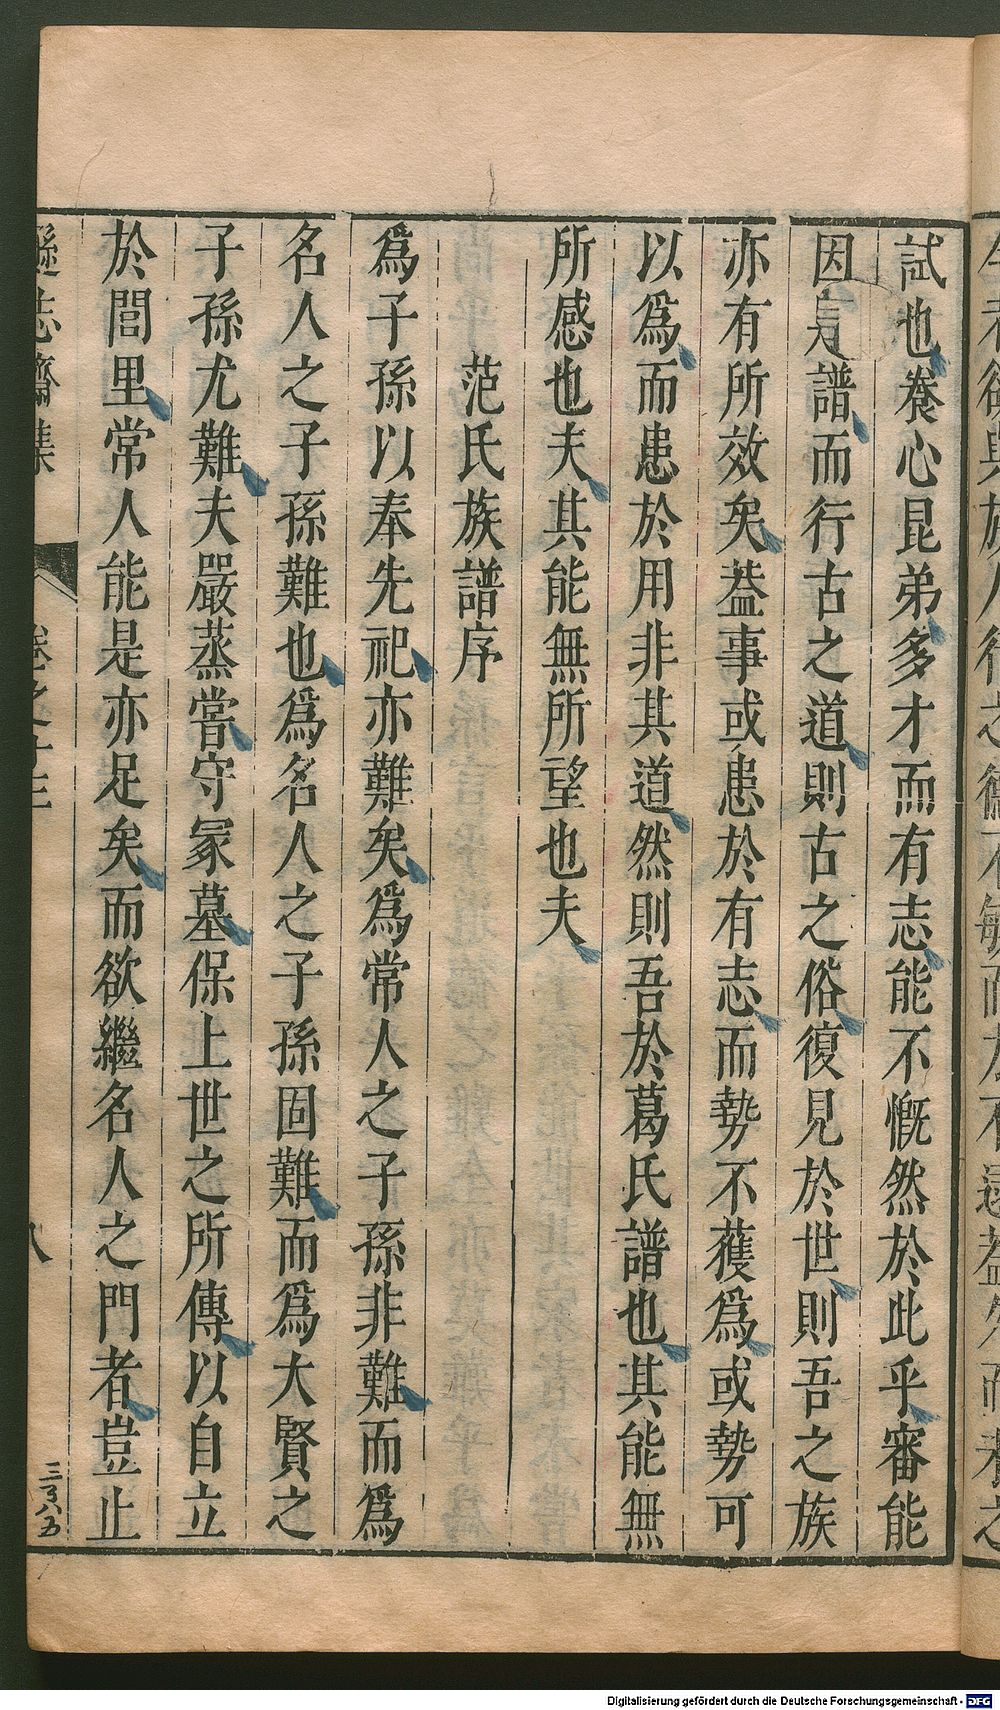 試也養心昆弟多才而有志能不慨然於此乎審能
因是譜而行古之道則古之俗復見於世則吾之族
亦有所效矣葢事或患於有志而勢不獲為或勢可
以為而患於用非其道然則吾於葛氏譜也其能無
所感也夫其能無所望也夫
范氏族譜序
為子孫以奉先祀亦難矣為常人之子孫非難而為
名人之子孫難也為名人之子孫固難而為大賢之
子孫尤難夫嚴蒸嘗守冢墓保上世之所傳以自立
於閭里常人能是亦足矣而欲繼名人之門者豈止
遜志齋集
卷之十三
八
Digitalisierung gefördert durch die Deutsche Forschungsgemeinschaft - DFG